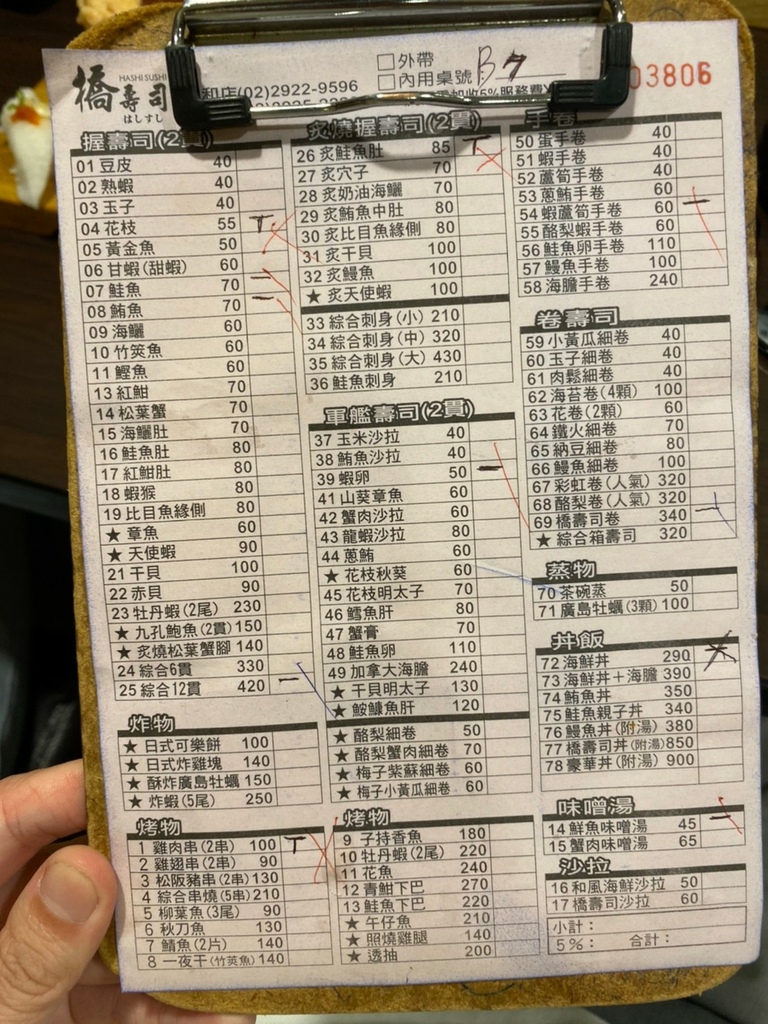 橋壽司
HASHI SUSHI
はしずし
和店(02)2922-9596
□外帶
□內用桌號 B7
03806
握壽司(2貫)
01 豆皮 40
02 熟蝦 40
03 玉子 40
04 花枝 55 T
05 黃金魚 50
06 甘蝦(甜蝦) 60
07 鮭魚 70 一
08 鮪魚 70 一
09 海鱺 60
10 竹筴魚 60
11 鰹魚 60
13 紅魽 70
14 松葉蟹 70
15 海鱺肚 70
16 鮭魚肚 80
17 紅魽肚 80
18 蝦猴 80
19 比目魚緣側 80
★ 章魚 60
★ 天使蝦 90
21 干貝 100
22 赤貝 90
23 牡丹蝦(2尾) 230
★ 九孔鮑魚(2貫) 150
★ 炙燒松葉蟹腳 140
24 綜合6貫 330
25 綜合12貫 420 一
炸物
★ 日式可樂餅 100
★ 日式炸雞塊 140
★ 酥炸廣島牡蠣 150
★ 炸蝦(5尾) 250
烤物
1 雞肉串(2串) 100 T
2 雞翅串(2串) 90
3 松阪豬串(2串) 130
4 綜合串燒(5串) 210
5 柳葉魚(3尾) 90
6 秋刀魚 130
7 鯖魚(2片) 140
8 一夜干(竹筴魚) 140
炙燒握壽司(2貫)
26 炙鮭魚肚 85 T
27 炙穴子 70
28 炙奶油海鱺 70
29 炙鮪魚中肚 80
30 炙比目魚緣側 80
31 炙干貝 100
32 炙鰻魚 100
★ 炙天使蝦 100
33 綜合刺身(小) 210
34 綜合刺身(中) 320
35 綜合刺身(大) 430
36 鮭魚刺身 210
軍艦壽司(2貫)
37 玉米沙拉 40
38 鮪魚沙拉 40
39 蝦卵 50 一
41 山葵章魚 60
42 蟹肉沙拉 60
43 龍蝦沙拉 80
44 蔥鮪 60
★ 花枝秋葵 60
45 花枝明太子 70
46 鱈魚肝 80
47 蟹膏 70
48 鮭魚卵 110
49 加拿大海膽 240
★ 干貝明太子 130
★ 鮟鱇魚肝 120
★ 酪梨細卷 50
★ 酪梨蟹肉細卷 70
★ 梅子紫蘇細卷 60
★ 梅子小黃瓜細卷 60
烤物
9 子持香魚 180
10 牡丹蝦(2尾) 220
11 花魚 240
12 青魽下巴 270
13 鮭魚下巴 220
★ 午仔魚 210
★ 照燒雞腿 140
★ 透抽 200
手卷
50 蛋手卷 40
51 蝦手卷 40
52 蘆筍手卷 40
53 蔥鮪手卷 60
54 蝦蘆筍手卷 60 一
55 酪梨蝦手卷 60
56 鮭魚卵手卷 110
57 鰻魚手卷 100
58 海膽手卷 240
卷壽司
59 小黃瓜細卷 40
60 玉子細卷 40
61 肉鬆細卷 40
62 海苔卷(4顆) 100
63 花卷(2顆) 60
64 鐵火細卷 70
65 納豆細卷 80
66 鰻魚細卷 100
67 彩虹卷(人氣) 320
68 酪梨卷(人氣) 320
69 橋壽司卷 340 一
★ 綜合箱壽司 320
蒸物
70 茶碗蒸 50
71 廣島牡蠣(3顆) 100
丼飯
72 海鮮丼 290
73 海鮮丼+海膽 390
74 鮪魚丼 350
75 鮭魚親子丼 340
76 鰻魚丼(附湯) 380
77 橋壽司丼(附湯) 850
78 豪華丼(附湯) 900
味噌湯
14 鮮魚味噌湯 45 一
15 蟹肉味噌湯 65
沙拉
16 和風海鮮沙拉 50
17 橋壽司沙拉 60
小計：
5%： 合計：